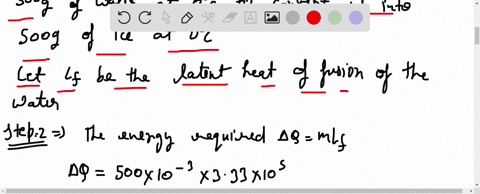 500g of
into
500g of Ice at 0°C
Let Lf be the latent heat of fusion of the
water
Step.2 => The energy required ΔQ = mLf
ΔQ = 500×10⁻³ × 3.33×10⁵